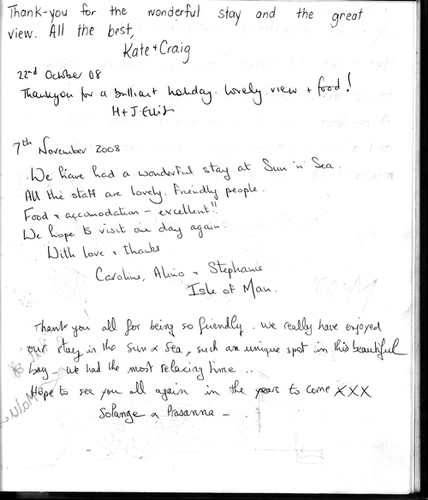 Thank-you for the wonderful stay and the great
view. All the best,
Kate + Craig
22nd October 08
Thankyou for a brilliant holiday. Lovely view + food!
H + J. Ellis
7th November 2008
We have had a wonderful stay at Sun 'n' Sea.
All the staff are lovely, friendly people.
Food + accomodation - excellent!!
We hope to visit one day again.
With love + thanks
Caroline, + Stephanie
Isle of Man.
Thank you all for being so friendly. We really have enjoyed
our stay in the Sun & Sea, such an unique spot in this beautiful
bay - we had the most relaxing time...
Hope to see you all again in the years to come XXX
Solange & Prasanna -